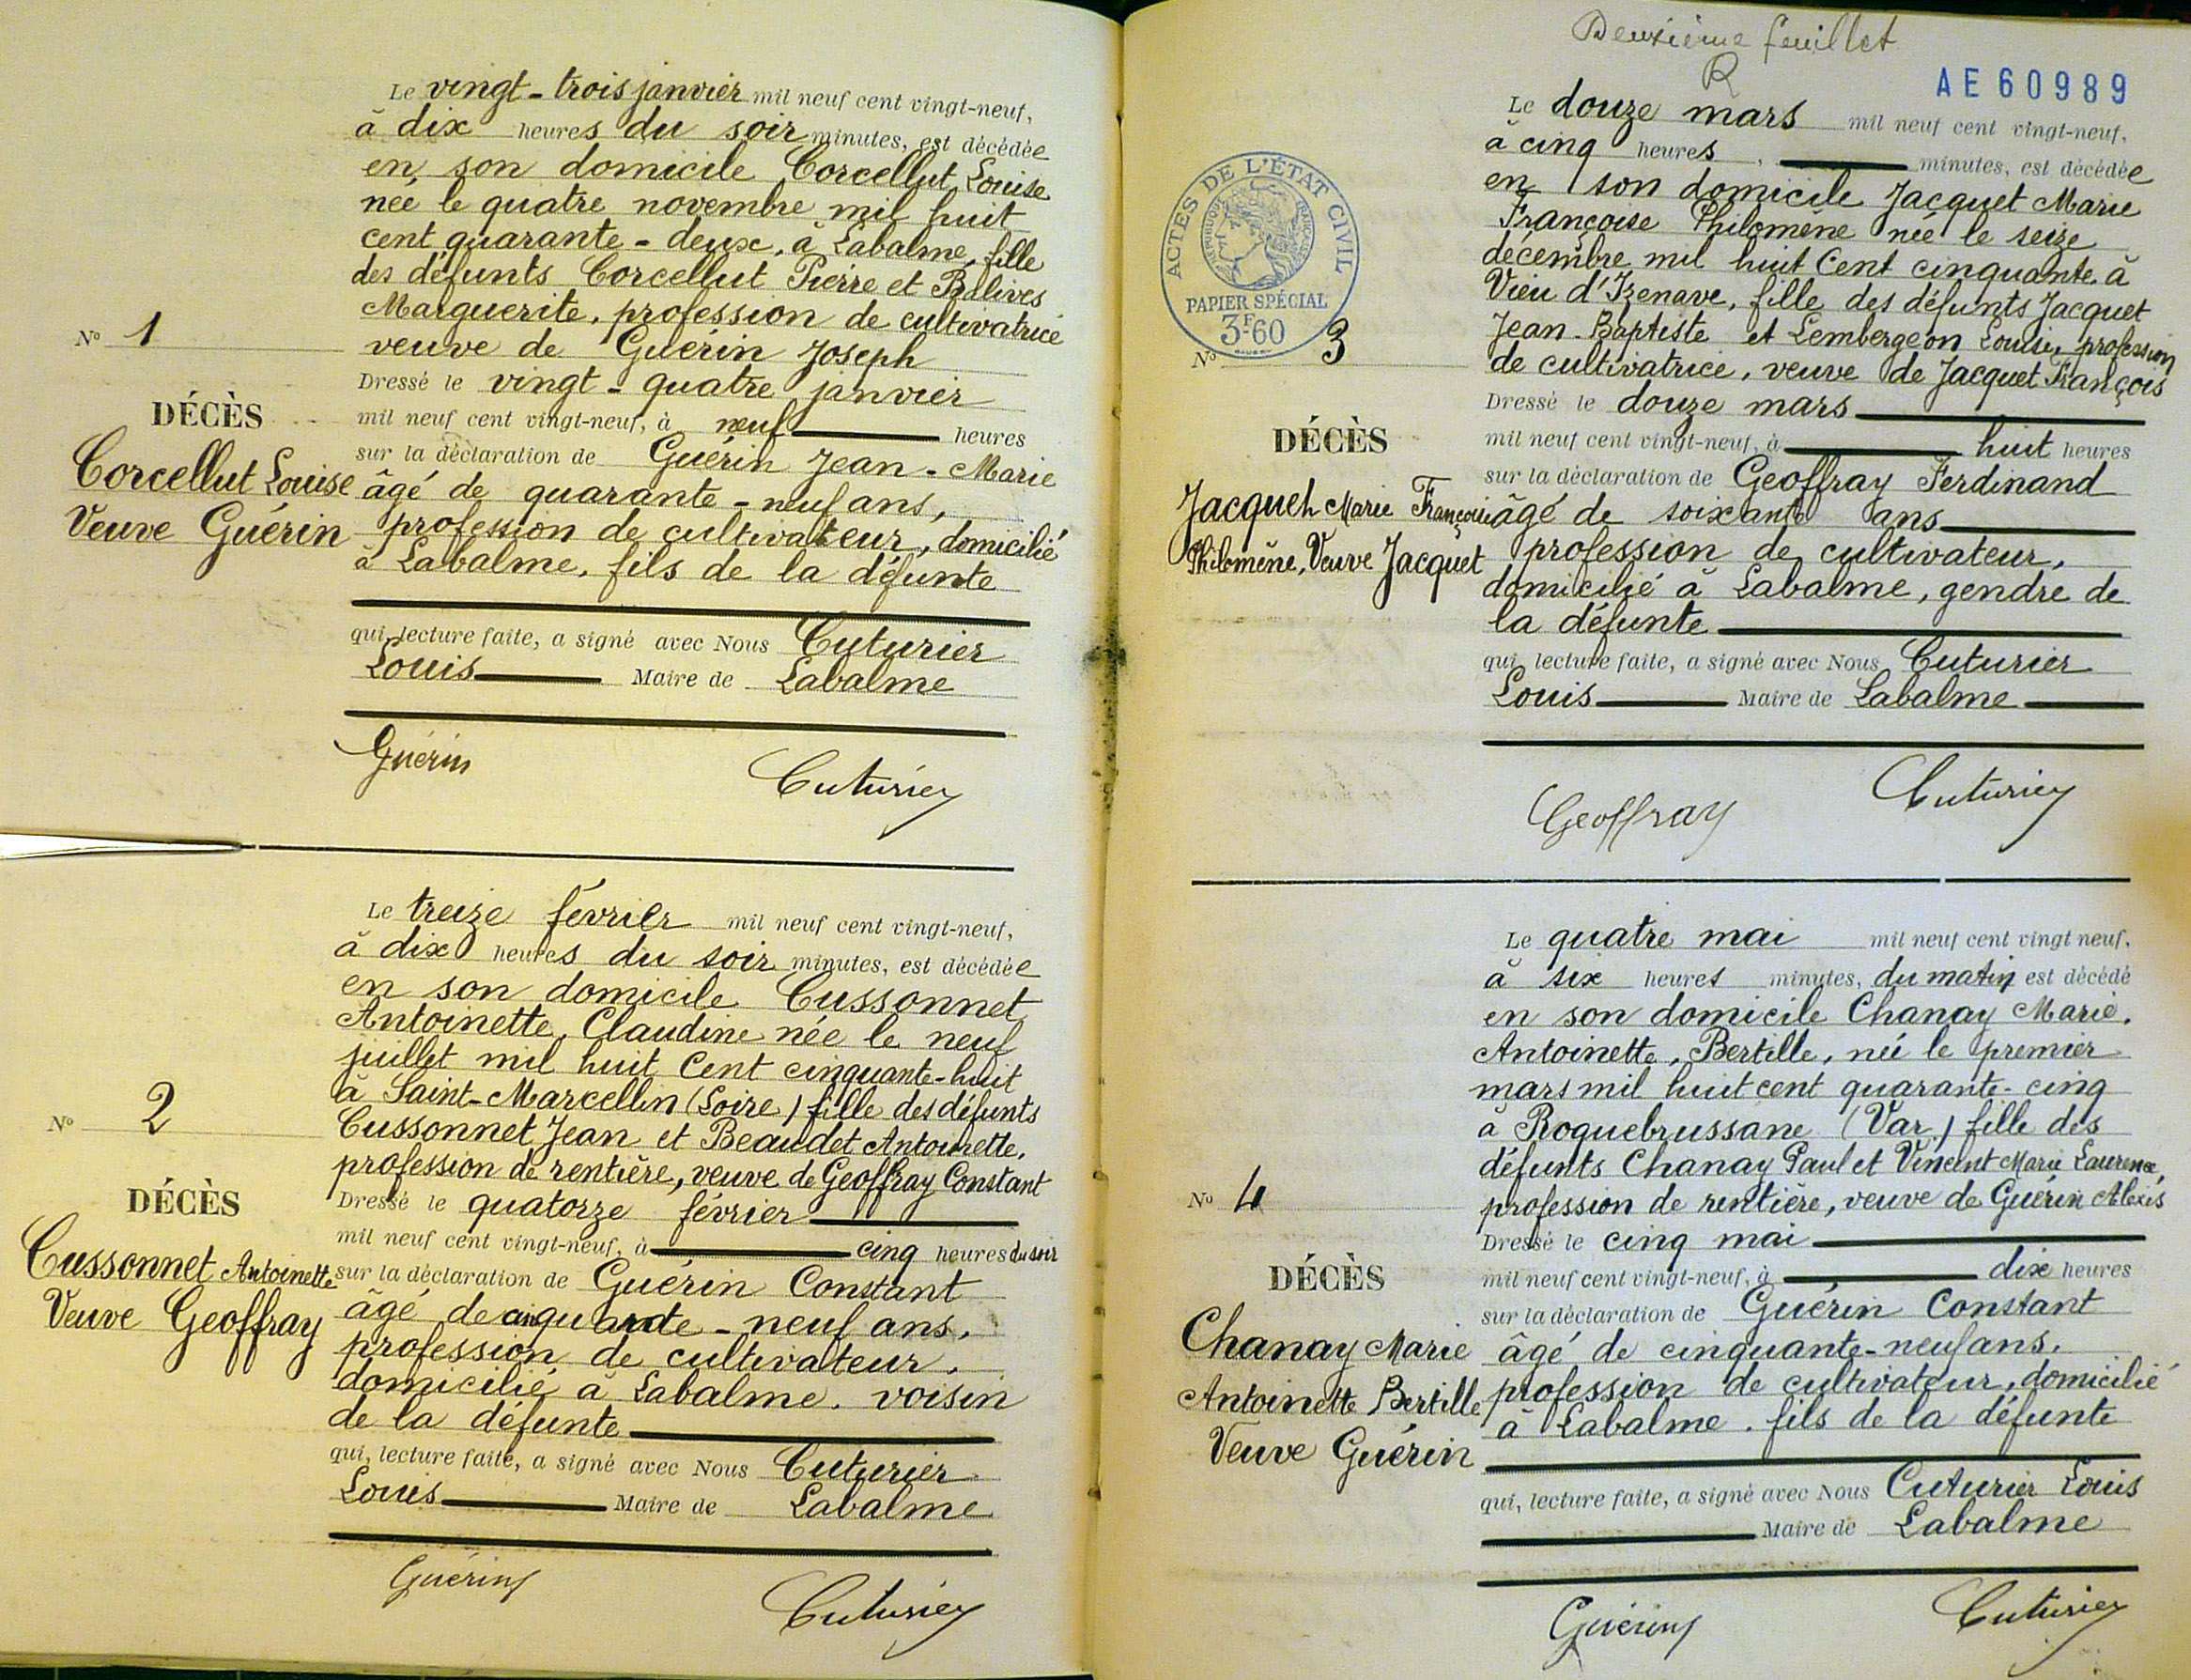 Le vingt-trois janvier mil neuf cent vingt-neuf,
à dix heures du soir minutes, est décédée
en son domicile Corcellut Louise
née le quatre novembre mil huit
cent quarante-deux, à Labalme, fille
des défunts Corcellut Pierre et Balives
Marguerite, profession de cultivatrice
veuve de Guérin Joseph
Dressé le vingt-quatre janvier
mil neuf cent vingt-neuf, à neuf heures
sur la déclaration de Guérin Jean-Marie
âgé de quarante-neuf ans,
profession de cultivateur, domicilié
à Labalme, fils de la défunte
qui, lecture faite, a signé avec Nous Cuturier
Louis Maire de Labalme
Guérin Cuturier
No 1
DÉCÈS
Corcellut Louise
Veuve Guérin
Le treize février mil neuf cent vingt-neuf,
à dix heures du soir minutes, est décédée
en son domicile Cussonnet
Antoinette, Claudine née le neuf
juillet mil huit cent cinquante-huit
à Saint-Marcellin (Loire) fille des défunts
Cussonnet Jean et Beaudet Antoinette,
profession de rentière, veuve de Geoffray Constant
Dressé le quatorze février
mil neuf cent vingt-neuf, à cinq heures du soir
sur la déclaration de Guérin Constant
âgé de cinquante-neuf ans,
profession de cultivateur,
domicilié à Labalme, voisin
de la défunte
qui, lecture faite, a signé avec Nous Cuturier
Louis Maire de Labalme
Guérin Cuturier
No 2
DÉCÈS
Cussonnet Antoinette
Veuve Geoffray
Deuxième feuillet
R
AE 60989
Le douze mars mil neuf cent vingt-neuf,
à cinq heures, minutes, est décédée
en son domicile Jacquet Marie
Françoise Philomène née le seize
décembre mil huit cent cinquante, à
Vieu d'Izenave, fille des défunts Jacquet
Jean-Baptiste et Lembergeon Louise, profession
de cultivatrice, veuve de Jacquet François
Dressé le douze mars
mil neuf cent vingt-neuf, à huit heures
sur la déclaration de Geoffray Ferdinand
âgé de soixante ans
profession de cultivateur,
domicilié à Labalme, gendre de
la défunte
qui, lecture faite, a signé avec Nous Cuturier
Louis Maire de Labalme
Geoffray Cuturier
ACTES DE L'ÉTAT CIVIL
RÉPUBLIQUE FRANÇAISE
PAPIER SPÉCIAL
3F60
No 3
DÉCÈS
Jacquet Marie Françoise
Philomène, Veuve Jacquet
Le quatre mai mil neuf cent vingt neuf,
à six heures minutes, du matin est décédé
en son domicile Chanay Marie,
Antoinette, Bertille, née le premier
mars mil huit cent quarante-cinq
à Roquebrussane (Var) fille des
défunts Chanay Paul et Vincent Marie Laurence,
profession de rentière, veuve de Guérin Alexis
Dressé le cinq mai
mil neuf cent vingt-neuf, à dix heures
sur la déclaration de Guérin Constant
âgé de cinquante-neuf ans,
profession de cultivateur, domicilié
à Labalme, fils de la défunte
qui, lecture faite, a signé avec Nous Cuturier Louis
Maire de Labalme
Guérin Cuturier
No 4
DÉCÈS
Chanay Marie
Antoinette Bertille
Veuve Guérin